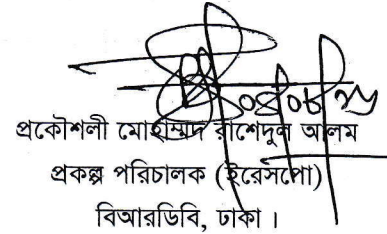 প্রকৌশলী মোহাম্মদ রাশেদুল আলম
প্রকল্প পরিচালক (ইরেসপো)
বিআরডিবি, ঢাকা ।